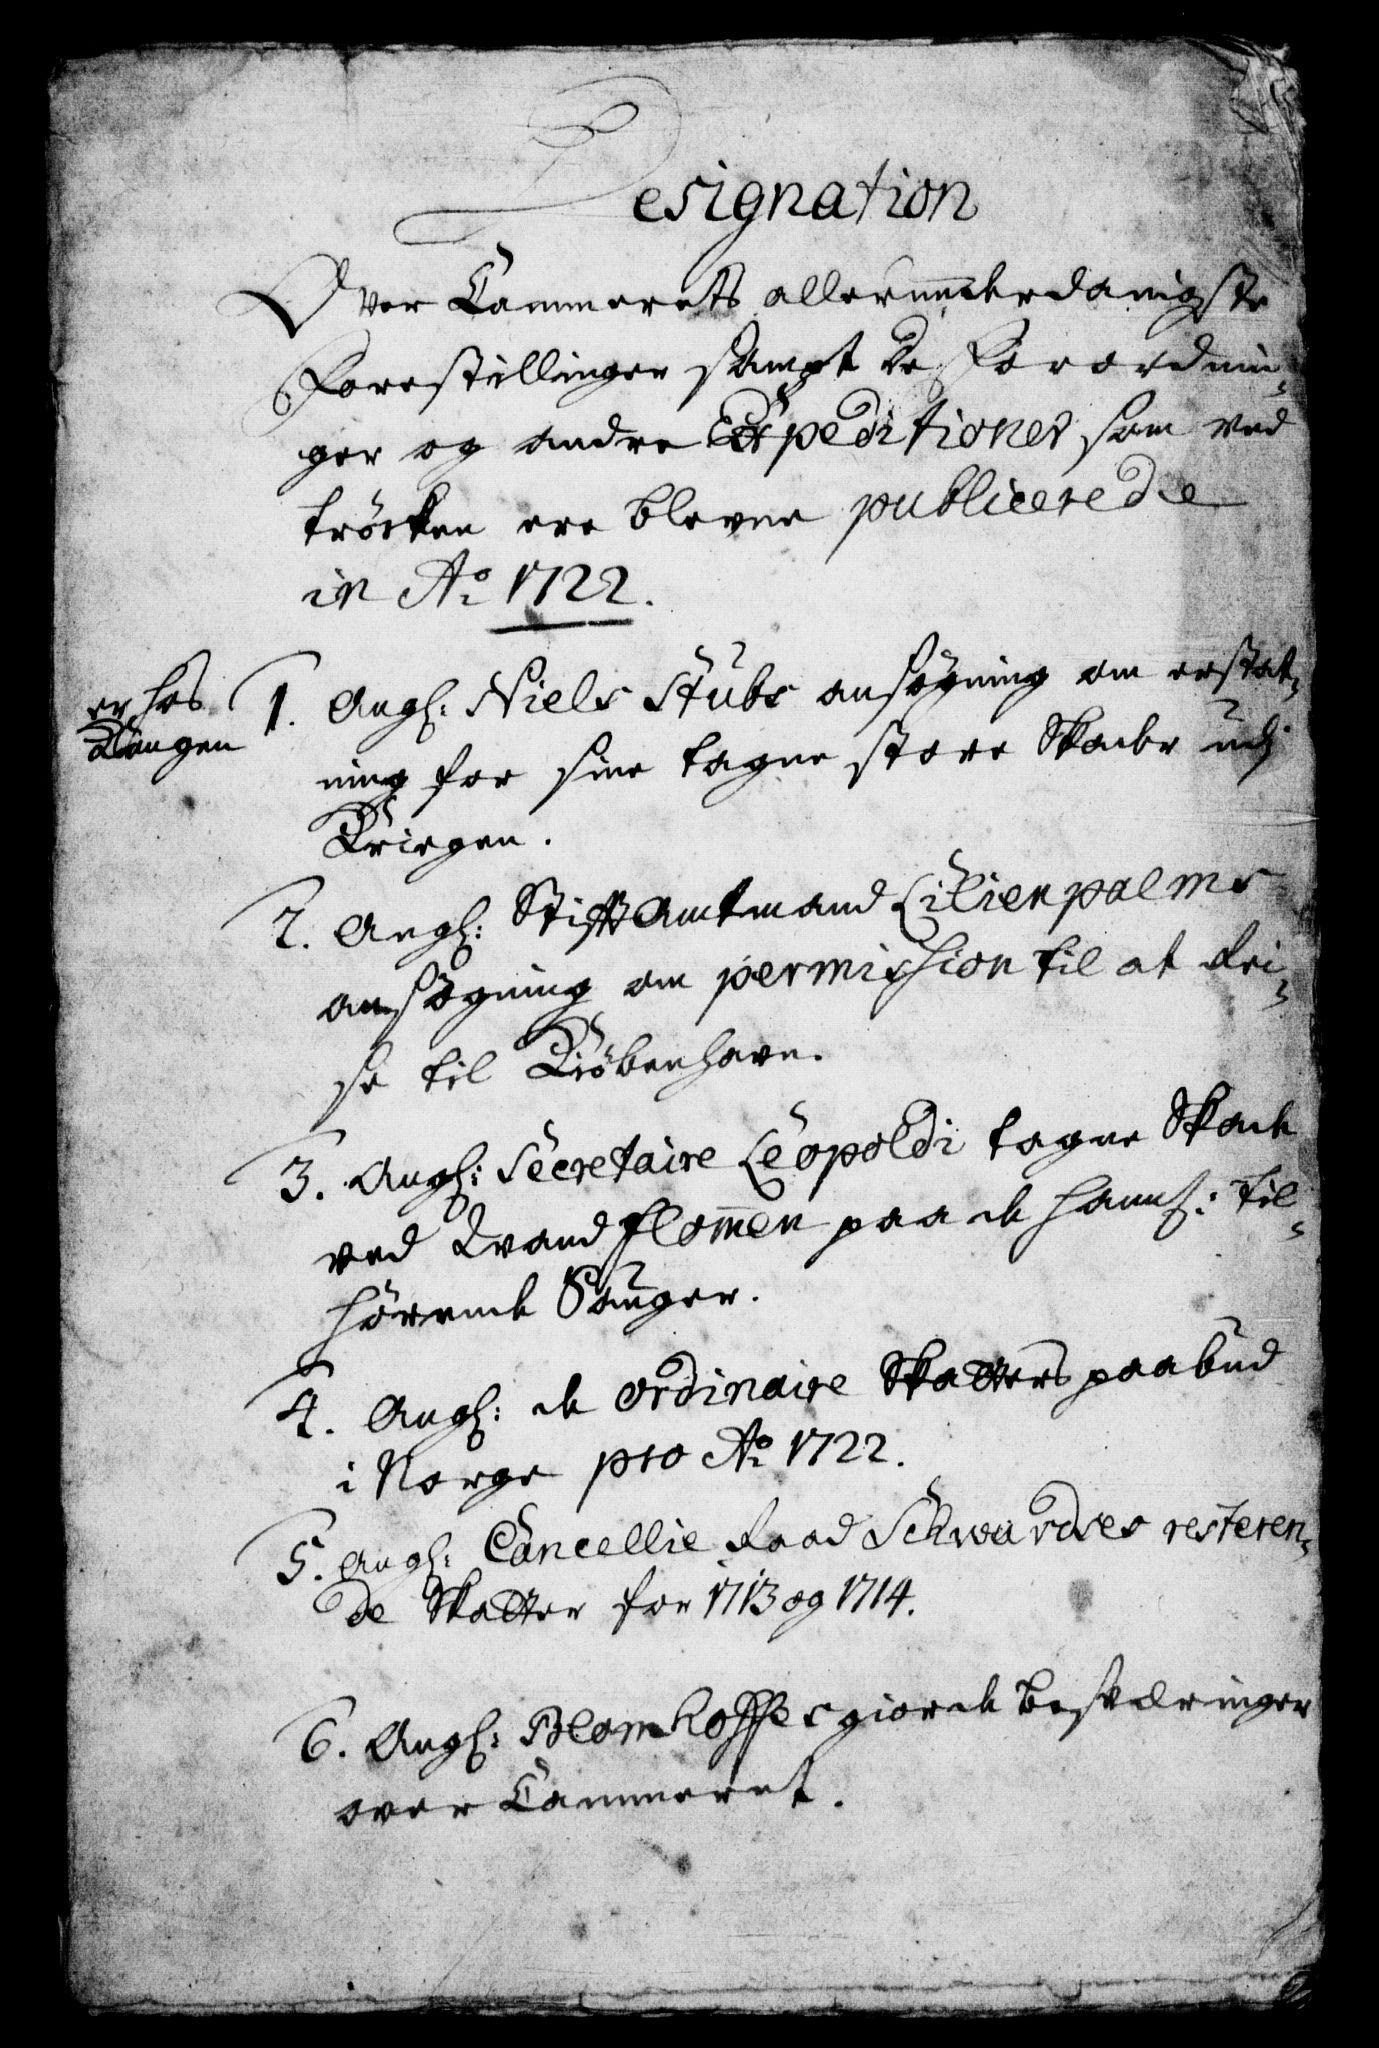 Designation
Over Cammerets allerunderdanigste
Forestillinger sampt de Forordnin-
ger og andre Expeditioner som ved
trøcken ere blevne publicerede
in Ao 1722.
er hos
Kongen
1. Angl: Niels Stubs ansøgning om erstat-
ning for sine tagne store Skade udj
Kriegen.
2. Angl: Stifft Amtmand Lilienpalms
ansøgning om permission til at Rei-
se til Kiøbenhavn.
3. Angl: Secretaire Leopoldi tagne Skade
ved Vand flom̅en paa de hannſ: til-
hørende Sauger.
4. Angl: de Ordinaire Skatters paabud
i Norge pro Ao 1722.
5. Angl: Cancellie Raad Schwardses resteren-
de Skatter for 1713 og 1714.
6. Angl: Blomhoffes giorde besværinger
over Cammeret.